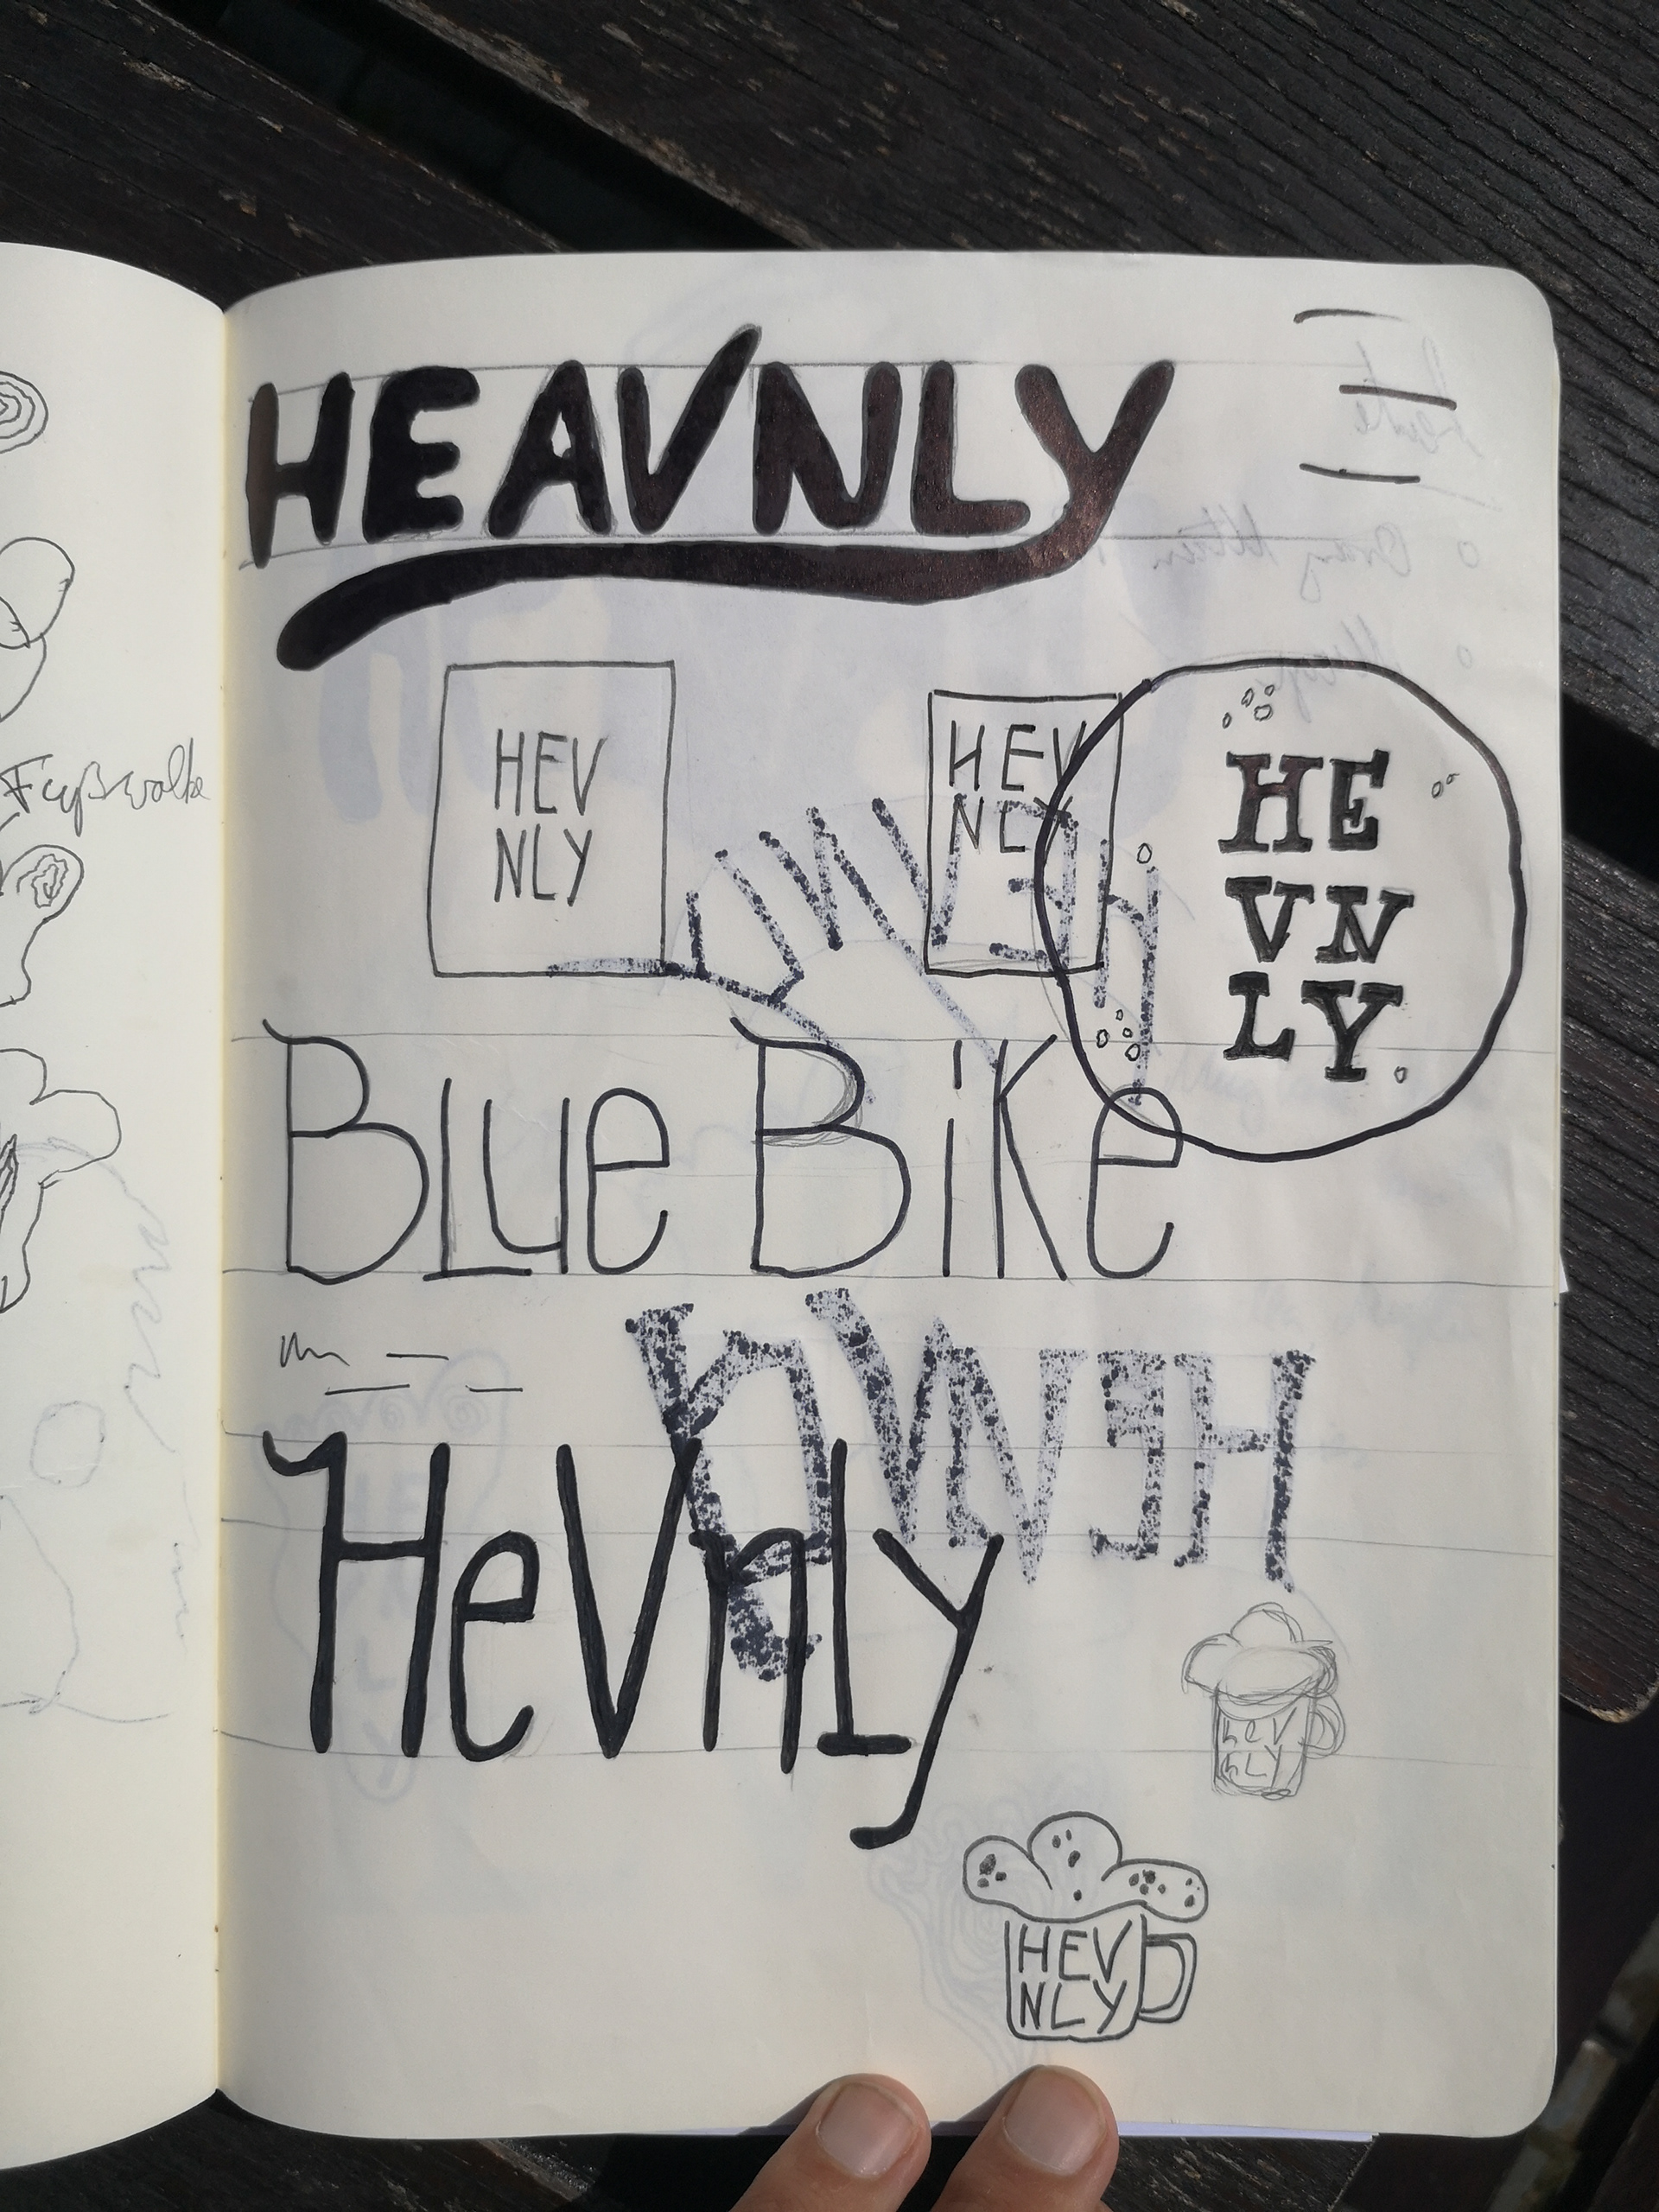 HEAVNLY
HEV
NLY
HEV
NLY
HE
VN
LY
Fußwolke
Blue Bike
HeVnLy
hev
nLy
HEV
NLY